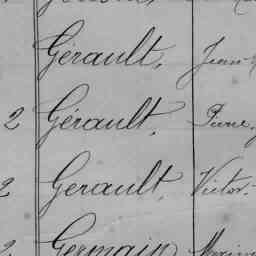 Gérault, Jean
2 Gérault, Pierre,
2 Gerault, Victor
2 Germain